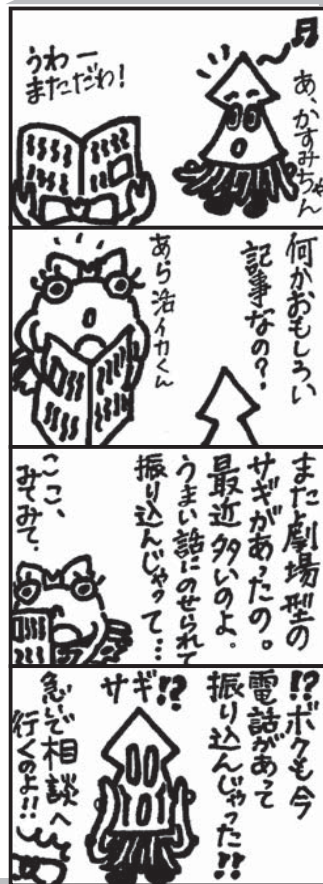 あ、かすみちゃん
うわー
まただわ!
何かおもしろい
記事なの?
あら活イカくん
また劇場型の
サギがあったの。
最近多いのよ。
うまい話にのせられて
振り込んじゃって…
ここ、
みてみて。
!?ボクも今
電話があって
振り込んじゃった!!
サギ!?
急いで相談へ
行くのよ!!